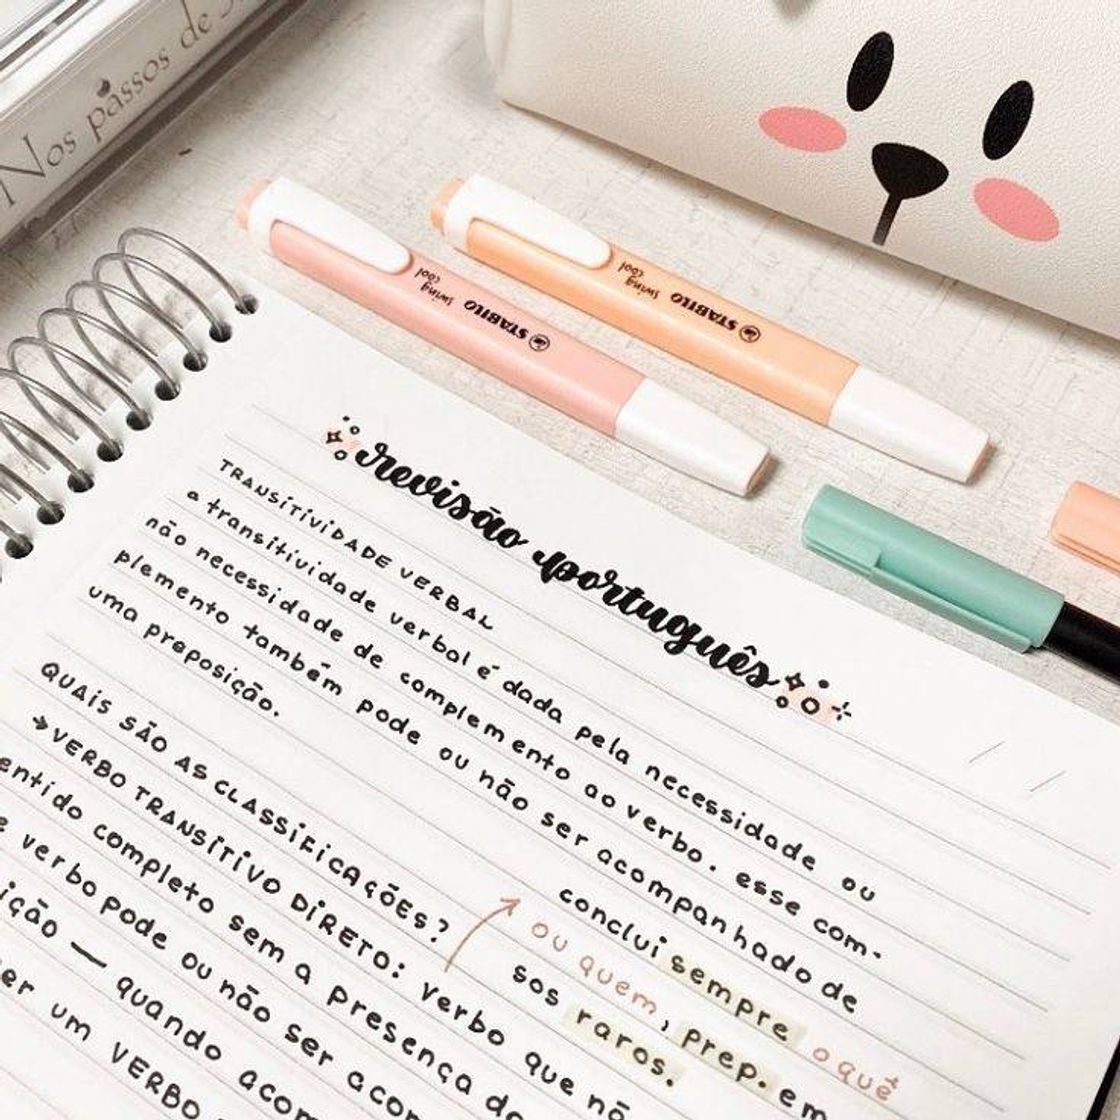 Nos passos de
STABILO swing cool
STABILO swing cool
revisão português
TRANSITIVIDADE VERBAL
a transitividade verbal é dada pela necessidade ou
não necessidade de complemento ao verbo. esse com-
plemento também pode ou não ser acompanhado de
uma preposição.
QUAIS SÃO AS CLASSIFICAÇÕES?
→VERBO TRANSITIVO DIRETO: verbo que
completo sem a presença
verbo pode ou não ser
— quando
um VERBO
conclui sempre oquê
ou quem, prep. em
sos raros.